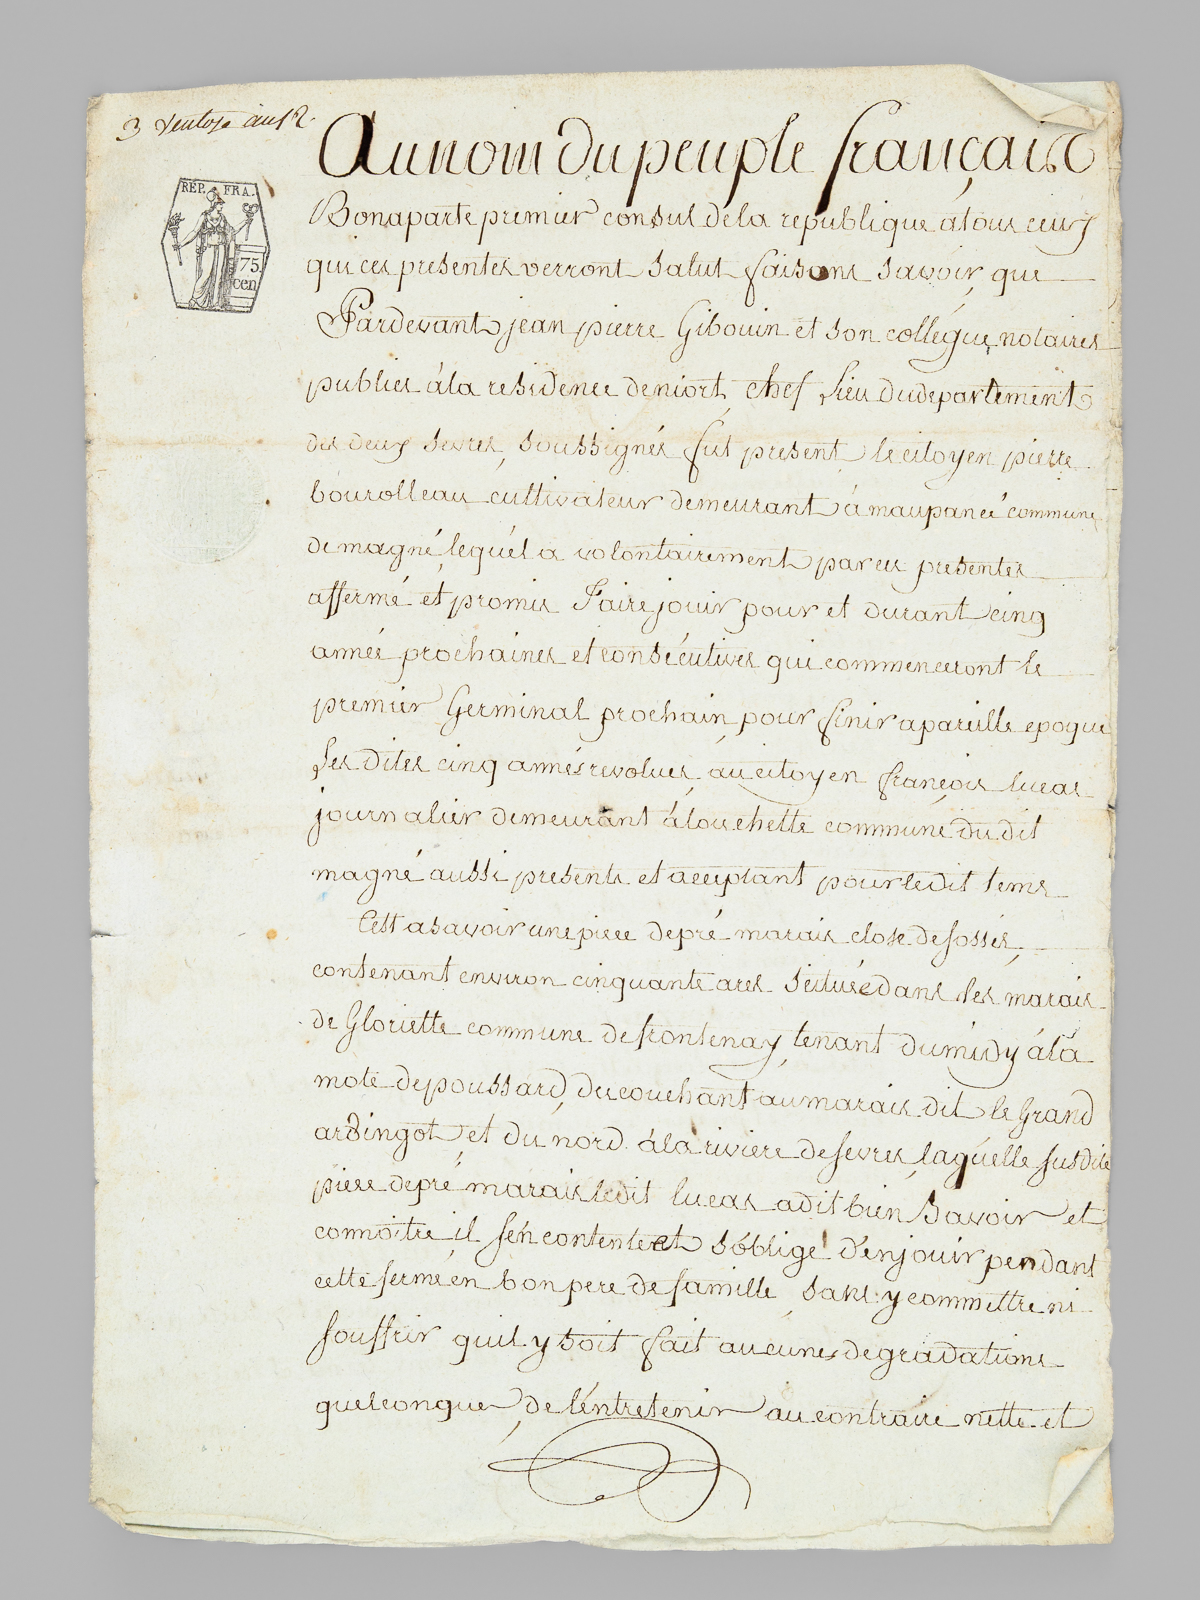 3 ventose an 12.
REP. FRA.
75
cen
Au nom du peuple français
Bonaparte premier consul de la republique à tous ceux
qui ces presentes verront salut faisons savoir que
Pardevant jean pierre Gibouin et son collégue notaires
publics à la residence de niort, chef lieu du departement
des deux sevres, soussignés fut present le citoyen pierre
bourolleau cultivateur demeurant à maupaneé commune
de magné lequél a volontairement par ces presentes
affermé et promis faire jouir pour et durant cinq
annés prochaines et consécutives qui commenceront le
premier Germinal prochain pour finir a pareille epoque
les dites cinq annés revolues, au citoyen françois lucas
journalier demeurant à louchette commune du dit
magné aussi presents et acceptant pour le dit tems
Cest a savoir une piece de pré marais close de fossés,
contenant environ cinquante ares scituée dans les marais
de Gloriette commune de frontenay, tenant du midy à la
mote de poussard, du couchant au marais dit le Grand
ardingot et du nord à la riviere de sevres, laquelle susdite
piece de pré marais ledit lucas a dit bien savoir et
connoitre il s'én contente et s'oblige d'en jouir pendant
cette ferme en bon pere de famille, sans y commettre ni
souffrir quil y soit fait aucunes degradations
quelconque, de l'éntretenir au contraire nette et